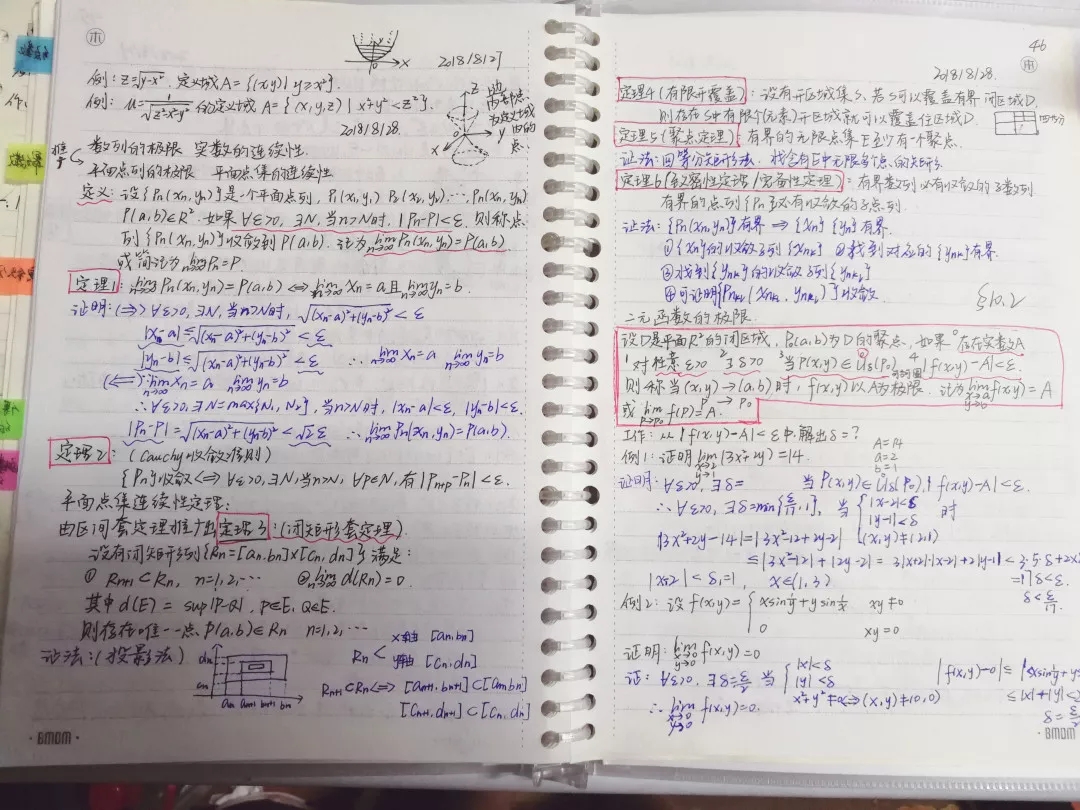 2018/8/27
例: z=√(y-x²), 定义域 A={(x,y)| y≥x²}.
例: u=1/√(z²-x²-y²) 的定义域 A={(x,y,z)| x²+y²<z²}.
2018/8/28.
推广
数列的极限 实数的连续性.
平面点列的极限 平面点集的连续性
定义: 设{Pn(xn,yn)}是个平面点列, P1(x1,y1) P2(x2,y2)...,Pn(xn,yn)
P(a,b)∈R². 如果∀ε>0, ∃N, 当n>N时, |Pn-P|<ε. 则称点
列{Pn(xn,yn)}收敛到P(a,b). 记为 lim n→∞ Pn(xn,yn)=P(a,b)
或简记为 lim n→∞ Pn=P.
定理1: lim n→∞ Pn(xn,yn)=P(a,b) ⟺ lim n→∞ xn=a 且 lim n→∞ yn=b.
证明:(⟹) ∀ε>0, ∃N, 当n>N时, √((xn-a)²+(yn-b)²)<ε
|xn-a|≤√((xn-a)²+(yn-b)²)<ε
|yn-b|≤√((xn-a)²+(yn-b)²)<ε ∴ lim n→∞ xn=a lim n→∞ yn=b
(⟸) ∵ lim n→∞ xn=a lim n→∞ yn=b
∴∀ε>0, ∃N=max{N1,N2}, 当n>N时, |xn-a|<ε, |yn-b|<ε.
|Pn-P|=√((xn-a)²+(yn-b)²)<√2ε ∴ lim n→∞ Pn(xn,yn)=P(a,b).
定理2: (Cauchy收敛准则)
{Pn}收敛⟺∀ε>0, ∃N, 当n>N, ∀p∈N, 有|Pn+p-Pn|<ε.
平面点集连续性定理:
由区间套定理推广出定理3:(闭矩形套定理)
设有闭矩形列{Rn=[an,bn]×[cn,dn]}满足:
① Rn+1⊂Rn, n=1,2,... ② lim n→∞ d(Rn)=0.
其中 d(E)=sup|P-Q|, P∈E, Q∈E.
则存在唯一一点 P(a,b)∈Rn n=1,2,...
证法:(投影法)
dn
cn
an an+1 bn+1 bn
Rn< x轴 [an,bn]
y轴 [cn,dn]
Rn+1⊂Rn⟺[an+1,bn+1]⊂[an,bn]
[cn+1,dn+1]⊂[cn,dn]
BMDM
46
2018/8/28.
定理4(有限开覆盖): 设有开区域集S, 若S可以覆盖有界闭区域D,
则存在S中有限个(元素)开区域就可以覆盖住区域D.
四等分
定理5(聚点定理): 有界的无限点集E至少有一个聚点.
证法: 四等分矩形法. 找含有E中无限多个点的矩形
定理6(致密性定理/完备性定理): 有界数列必有收敛的子数列
有界的点列{Pn}必有收敛的子点列.
证法: {Pn(xn,yn)}有界 ⟹ {xn} {yn}有界.
①{xn}的收敛子列{xnk} ②找到对应的{ynk}有界.
③找到{ynk}的收敛子列{ynkj}
④可证明{Pnkj(xnkj,ynkj)}收敛
§10.2
二元函数的极限.
设D是平面R²的闭区域, P0(a,b)为D的聚点, 如果⁰存在实数A
¹对任意ε>0 ²∃δ>0 ³当P(x,y)∈U̥δ(P0) ⁴|f(x,y)-A|<ε.
则称当(x,y)→(a,b)时, f(x,y)以A为极限. 记为 lim x→a y→b f(x,y)=A
P→P0
或 lim P→P0 f(P)=A.
工作: 从|f(x,y)-A|<ε中,解出δ=?
例1: 证明 lim x→2 y→1 (3x²+2y)=14.
A=14
a=2
b=1
证明: ∀ε>0, ∃δ= 当P(x,y)∈U̥δ(P0), |f(x,y)-A|<ε.
∴∀ε>0, ∃δ=min{ε/17,1}, 当 { |x-2|<δ |y-1|<δ (x,y)≠(2,1) 时
|3x²+2y-14|=|3x²-12+2y-2|
≤|3x²-12|+|2y-2|=3|x+2|·|x-2|+2|y-1|<3·5·δ+2×
|x-2|<δ1=1, x∈(1,3)
=17δ<ε.
δ<ε/17
例2: 设 f(x,y)={ x sin 1/y + y sin 1/x xy≠0
0 xy=0
证明: lim x→0 y→0 f(x,y)=0
证: ∀ε>0, ∃δ=ε/2, 当 { |x|<δ |y|<δ x²+y²≠0⟺(x,y)≠(0,0)
|f(x,y)-0|≤|x sin 1/y + y
≤|x|+|y|<
δ=ε/2
∴ lim x→0 y→0 f(x,y)=0.
BMDM